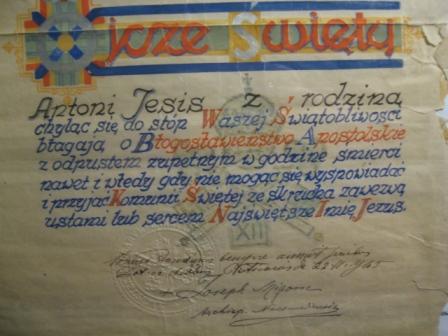 Ojcze Święty
Antoni Jesis z rodziną
chyląc się do stóp Waszej Świątobliwości
błagają o Błogosławieństwo Apostolskie
z odpustem zupełnym w godzinę śmierci
nawet i wtedy gdy nie mogąc się wyspowiadać
i przyjąć Komunii Świętej ze skruchą zawezwą
ustami lub sercem Najświętsze Imię Jezus.
XII
Joseph Migone